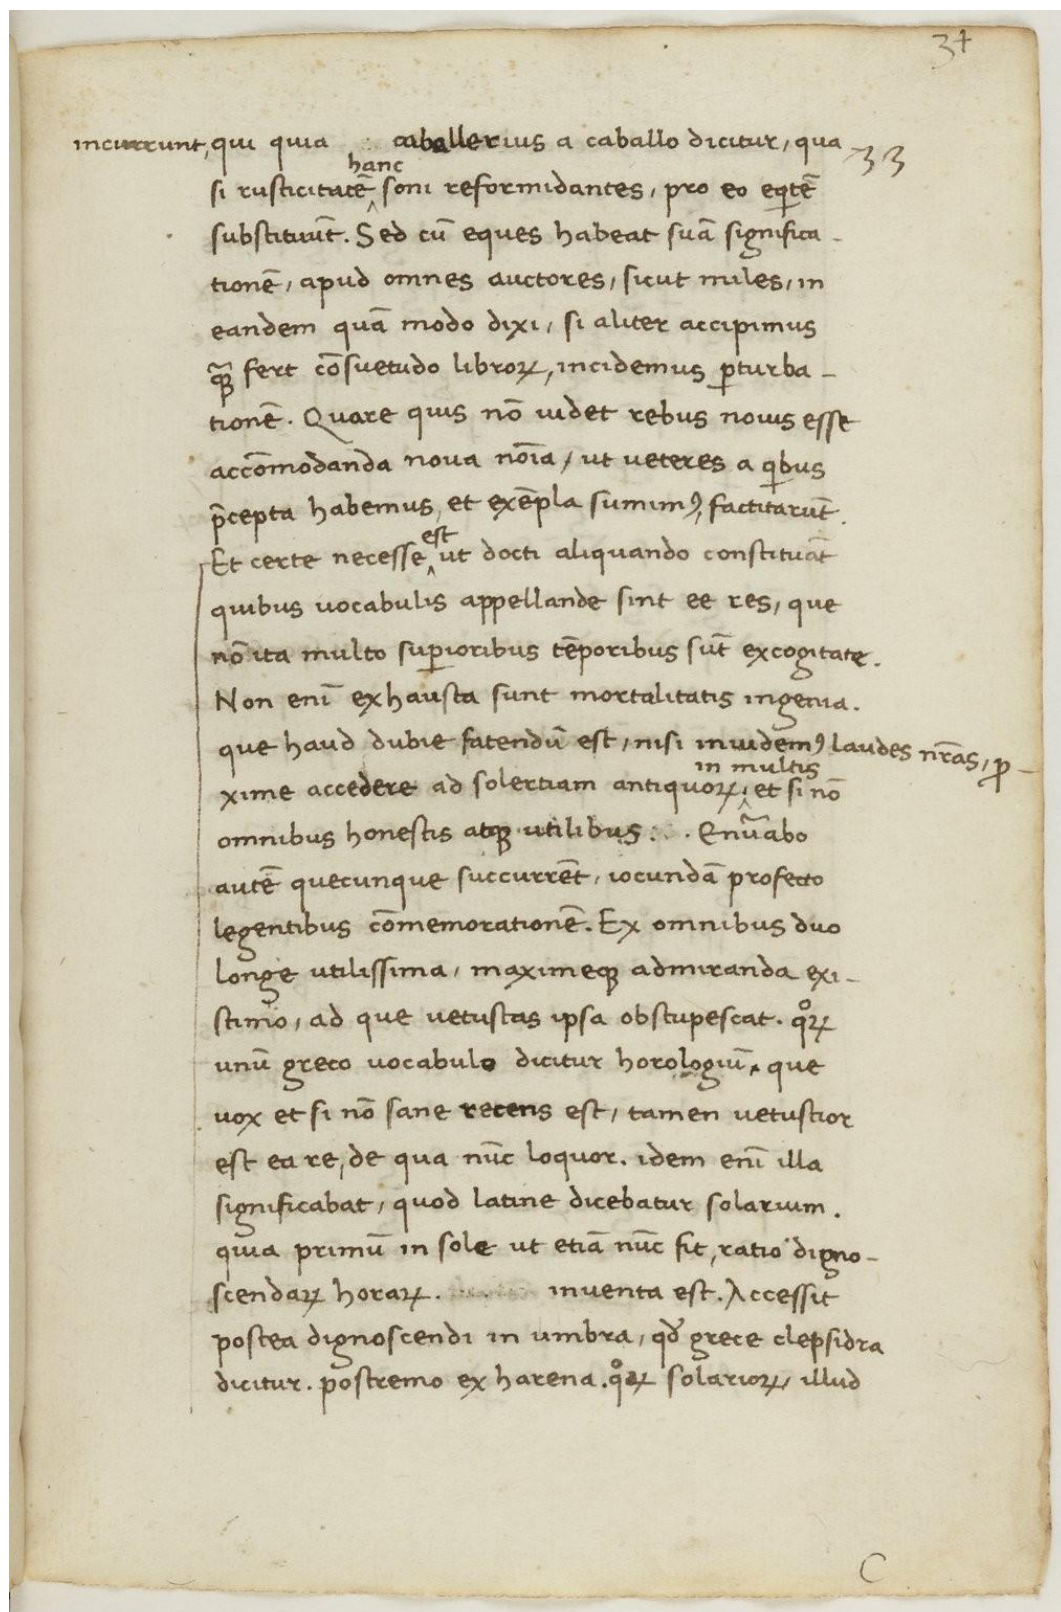 34
incurrunt, qui quia caballerius a caballo dicitur, qua
33
hanc
si rusticitatē soni reformidantes, pro eo eqitē
substituūt. Sed cū eques habeat suā significa-
tionē, apud omnes auctores, sicut miles, in
eandem quā modo dixi, si aliter accipimus
fert cōsuetudo libroꝝ, incidemus ꝑturba-
tionē. Quare quis nō uidet rebus nouis esse
accōmodanda noua noīa, ut ueteres a qibus
p̄cepta habemus, et exēpla sumimꝰ, factitarūt.
est
Et certe necesse ut docti aliquando constituāt
quibus uocabulis appellande sint ee res, que
nō ita multo suꝑioribus tēporibus sūt excogitate.
Non enī exhausta sunt mortalitatis ingenia.
que haud dubie fatendū est, nisi inuidemꝰ laudes nr̄as, ꝓ-
in multis
xime accedere ad solertiam antiquoꝝ, et si nō
omnibus honestis atqꝫ utilibus. Enūabo
autē quecunque succurrēt, iocundā profecto
legentibus cōmemorationē. Ex omnibus duo
longe utilissima, maximeqꝫ admiranda exi-
stimo, ad que uetustas ipsa obstupescat. qͦꝝ
unū greco uocabulo dicitur horologiū, que
uox et si nō sane recens est, tamen uetustior
est ea re, de qua nūc loquor. idem enī illa
significabat, quod latine dicebatur solarium.
quia primū in sole ut etiā nūc fit, ratio digno-
scendaꝝ horaꝝ. inuenta est. Accessit
postea dignoscendi in umbra, qd̄ grece clepsidra
dicitur. postremo ex harena. qͦꝝ solarioꝝ, illud
C